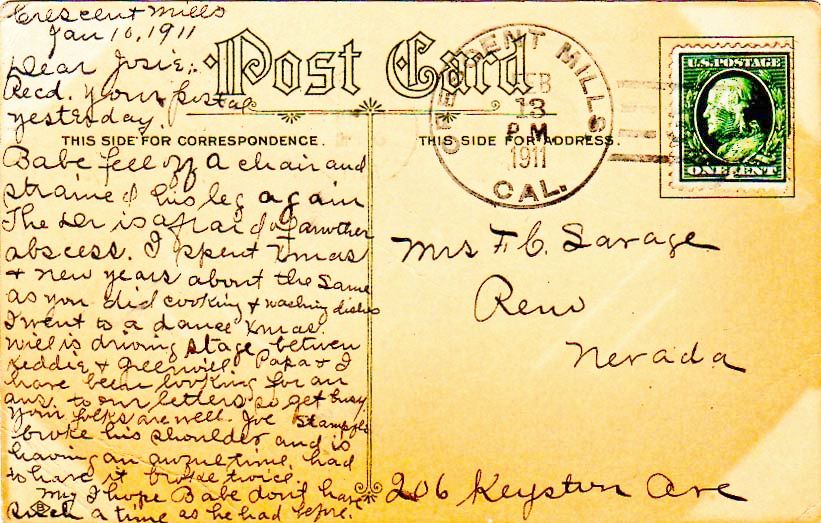 Crescent Mills
Jan 10, 1911
Dear Josie;
Recd. your postal
yesterday.
Post Card
THIS SIDE FOR CORRESPONDENCE.
THIS SIDE FOR ADDRESS.
Babe fell off a chair and
strained his leg again
The Dr is afraid of another
abscess. I spent Xmas
+ New years about the same
as you did cooking + washing dishes
I went to a dance Xmas.
Will is driving stage between
Keddie + Greenvill. Papa + I
have been looking for an
ans. to our letters so get busy.
Your folks are well. Joe
broke his shoulder and is
having an awful time. had
to have it broke twice.
My I hope Babe don't have
such a time as he had before.
CRESCENT MILLS
FEB
13
P.M.
1911
CAL.
U.S. POSTAGE
ONE CENT
Mrs F. C. Savage
Reno
Nevada
206 Keyston Ave